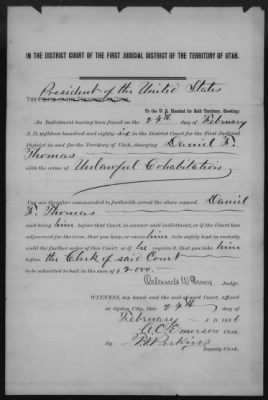 IN THE DISTRICT COURT OF THE FIRST JUDICIAL DISTRICT OF THE TERRITORY OF UTAH.
President of the United States
To the U. S. Marshal for Said Territory, Greeting:
An Indictment having been found on the 24th day of February
A. D. eighteen hundred and eighty-six in the District Court for the First Judicial
District in and for the Territory of Utah, charging Daniel F.
Thomas
with the crime of Unlawful Cohabitation
You are therefore commanded to forthwith arrest the above named Daniel
F. Thomas
and bring him before that Court, to answer said indictment, or if the Court has
adjourned for the term, that you keep, or cause him to be safely kept in custody
until the further order of this Court, or if he require it, that you take him
before the Clerk of said Court
to be admitted to bail in the sum of $2000.—
Orlando W Powers Judge.
WITNESS, my hand and the seal of said Court, affixed
at Ogden City, this 24th day of
February A. D. 1886
A C Emerson Clerk.
By F. S. Perkins
Deputy Clerk.